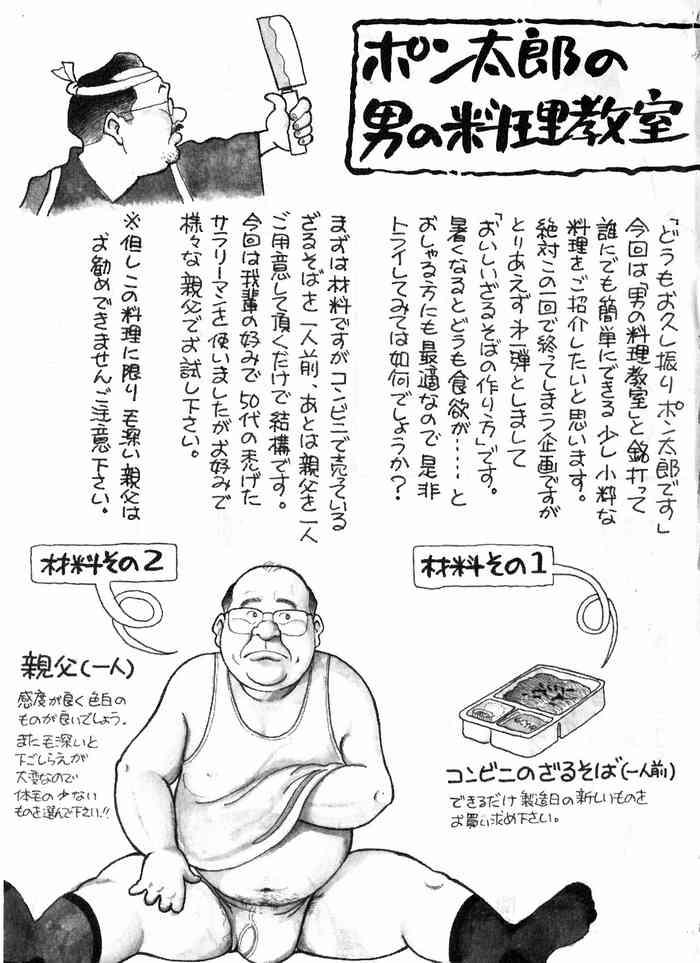 ポン太郎の
男の料理教室
「どうもお久し振り ポン太郎です」
今回は「男の料理教室」と銘打って
誰にでも簡単にできる 少し小粋な
料理をご紹介したいと思います。
絶対この一回で終ってしまう企画ですが
とりあえず 才一弾としまして
「おいしいざるそばの作り方」です。
暑くなるとどうも食欲が……と
おしゃる方にも最適なので 是非
トライしてみては如何でしょうか？
まずは材料ですが コンビニで売っている
ざるそばを一人前、あとは親父を一人
ご用意して頂くだけで結構です。
今回は我輩の好みで 50代の禿げた
サラリーマンを使いましたがお好みで
様々な親父でお試し下さい。
※但しこの料理に限り 毛深い親父は
お勧めできませんご注意下さい。
材料その1
コンビニのざるそば(一人前)
できるだけ 製造日の新しいものを
お買い求め下さい。
材料その2
親父(一人)
感度が良く色白の
ものが良いでしょう。
また毛深いと
下ごしらえが
大変なので
体毛の少ない
ものを選んで下さい!!